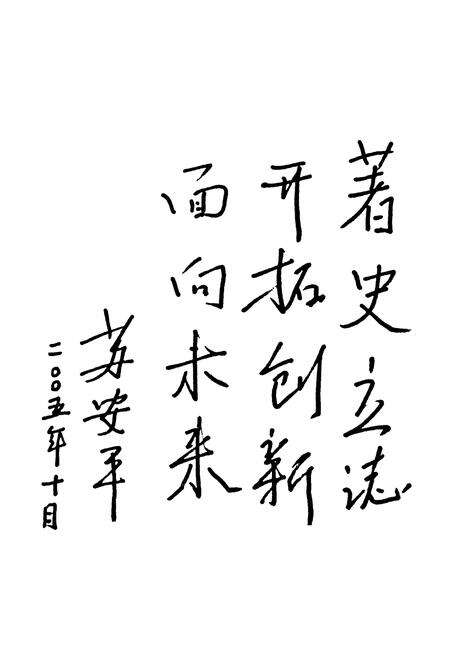 著史立志
开拓创新
面向未来
苏安平
二〇〇五年十月